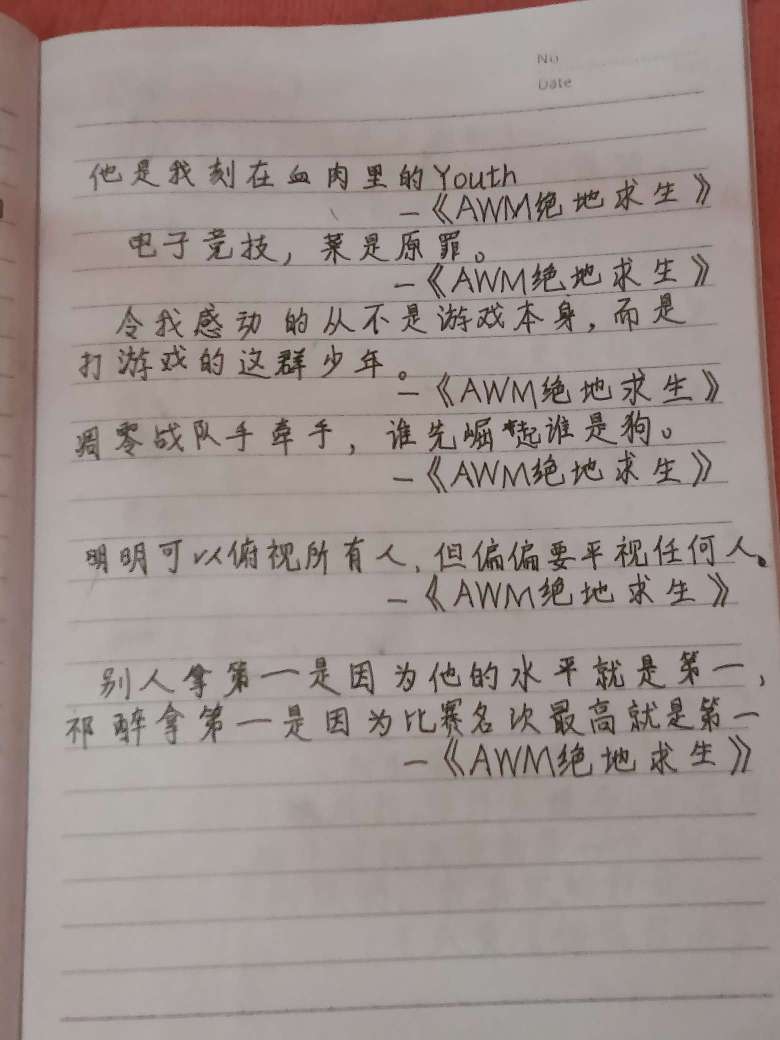 No
Date
他是我刻在血肉里的Youth
—《AWM绝地求生》
电子竞技，菜是原罪。
—《AWM绝地求生》
令我感动的从不是游戏本身，而是
打游戏的这群少年。
—《AWM绝地求生》
凋零战队手牵手，谁先崛起谁是狗。
—《AWM绝地求生》
明明可以俯视所有人，但偏偏要平视任何人。
—《AWM绝地求生》
别人拿第一是因为他的水平就是第一，
祁醉拿第一是因为比赛名次最高就是第一
—《AWM绝地求生》